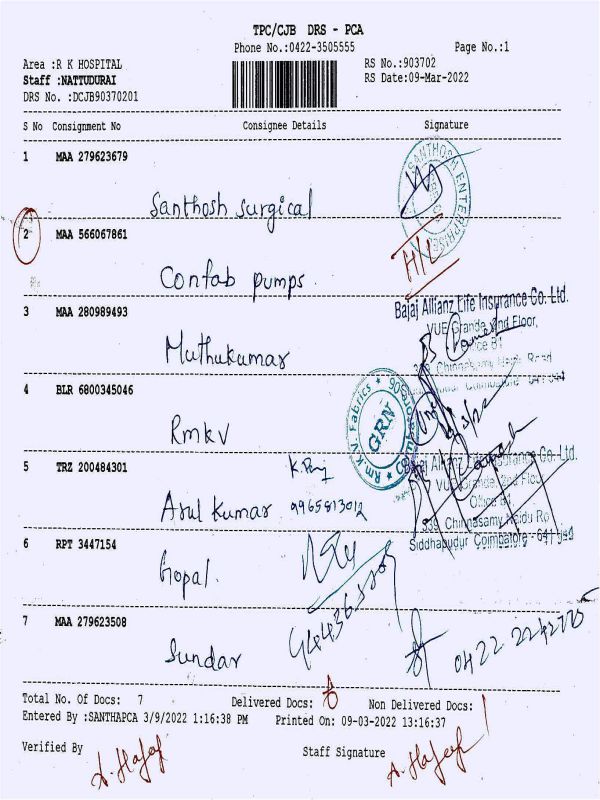 TPC/CJB DRS - PCA
Phone No.:0422-3505555 Page No.:1
Area :R K HOSPITAL RS No.:903702
Staff :NATTUDURAI RS Date:09-Mar-2022
DRS No. :DCJB90370201
S No Consignment No Consignee Details Signature
1 MAA 279623679
SANTHOSH ENTERPRISES
Santhosh surgical
2 MAA 566067861
H/L
Confab pumps.
3 MAA 280989493
Bajaj Allianz Life Insurance Co. Ltd.
VUE Grande, 2nd Floor,
Chinnasamy Naidu Road
Coimbatore
Muthukumar
4 BLR 6800345046
Rm.K.V. Fabrics
GRN
Rmkv
5 TRZ 200484301
Bajaj Allianz Life Insurance Co. Ltd.
VUE Grande, 2nd Floor
Office B1
339, Chinnasamy Naidu Ro
Siddhapudur, Coimbatore
Arul kumar 9965813012
6 RPT 3447154
Gopal.
7 MAA 279623508
Sundar 0422 2242725
Total No. Of Docs: 7 Delivered Docs: 6 Non Delivered Docs: 1
Entered By :SANTHAPCA 3/9/2022 1:16:38 PM Printed On: 09-03-2022 13:16:37
Verified By Staff Signature